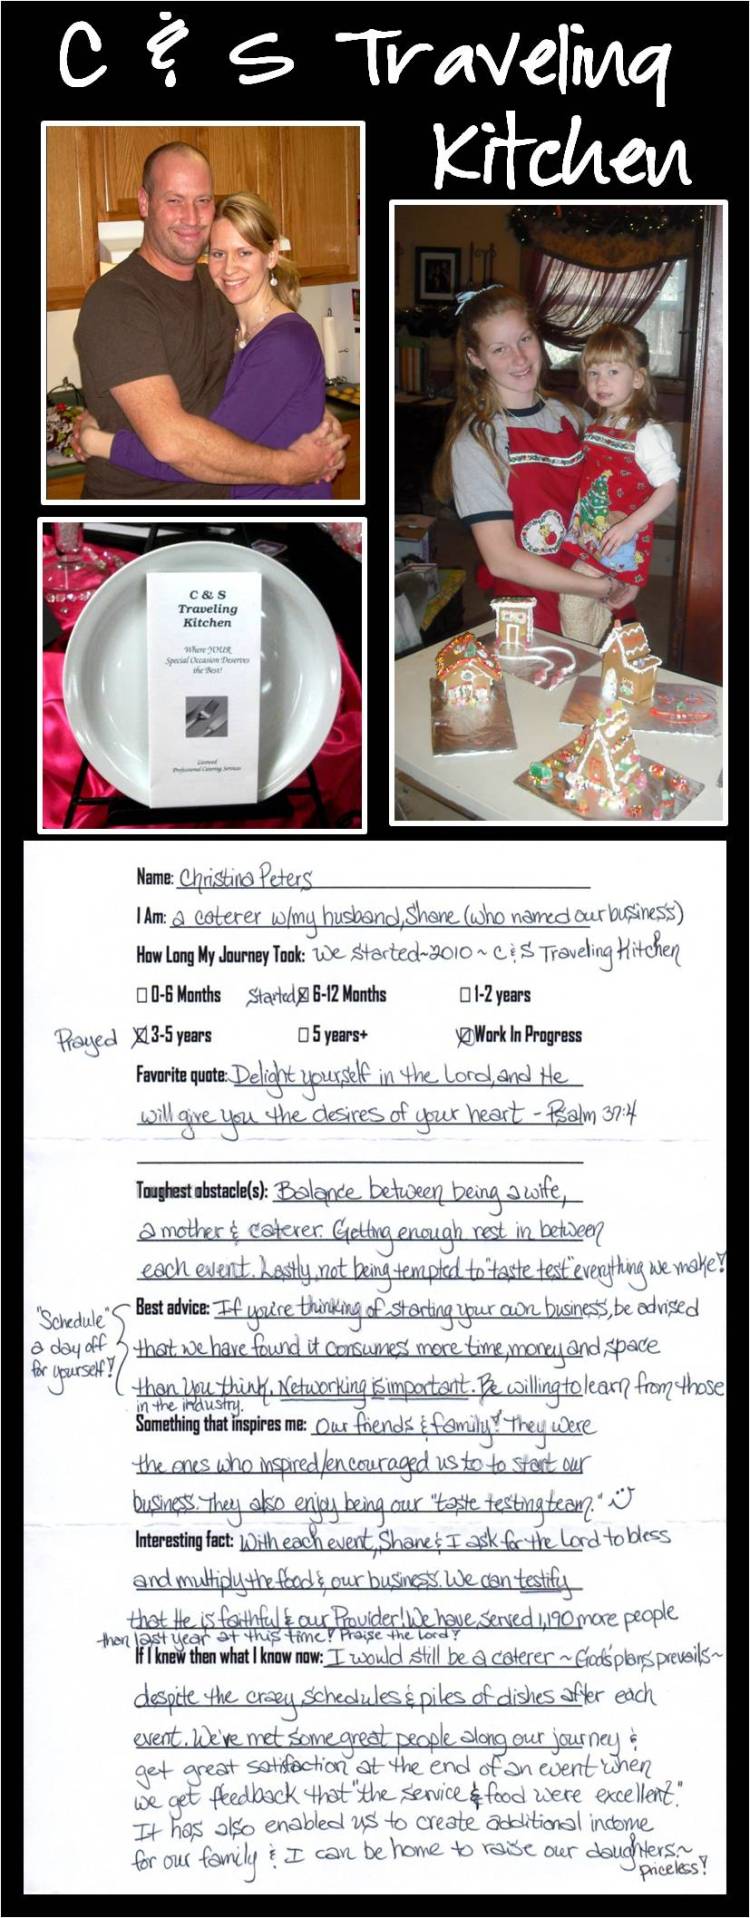 C & S Traveling
Kitchen
C & S
Traveling
Kitchen
Where YOUR
Special Occasion Deserves
the Best!
Licensed
Professional Catering Services
Name: Christina Peters
I Am: a caterer w/my husband, Shane (who named our business)
How Long My Journey Took: We started~2010~C & S Traveling Kitchen
☐ 0-6 Months Started ☒ 6-12 Months ☐ 1-2 years
Prayed ☒ 3-5 years ☐ 5 years+ ☒ Work In Progress
Favorite quote: Delight yourself in the Lord, and He
will give you the desires of your heart - Psalm 37:4
Toughest obstacle(s): Balance between being a wife,
a mother & caterer. Getting enough rest in between
each event. Lastly, not being tempted to "taste test" everything we make!
"Schedule"
a day off
for yourself!
Best advice: If you're thinking of starting your own business, be advised
that we have found it consumes more time, money and space
than you think. Networking is important. Be willing to learn from those
in the industry.
Something that inspires me: Our friends & family! They were
the ones who inspired/encouraged us to to start our
business. They also enjoy being our "taste testing team."
Interesting fact: With each event, Shane & I ask for the Lord to bless
and multiply the food & our business. We can testify
that He is faithful & our Provider! We have served 1,190 more people
than last year at this time! Praise the Lord!
If I knew then what I know now: I would still be a caterer ~ God's plans prevails~
despite the crazy schedules & piles of dishes after each
event. We've met some great people along our journey &
get great satisfaction at the end of an event when
we get feedback that "the service & food were excellent."
It has also enabled us to create additional income
for our family & I can be home to raise our daughters~
priceless!